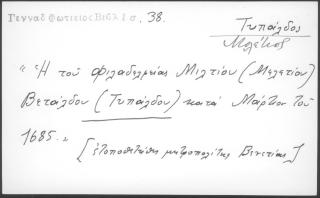 Γεννάδ Φωτιείος Βιβλ 1 σ, 38.
Τυπάλδος
Μελέτιος
"Ἡ τοῦ Φιλαδελφείας Μιλτίου (Μελετίου)
Βετάλδου (Τυπάλδου) κατά Μάρτιον τοῦ
1685."
[ἐτοποθετήθη μητροπολίτης Βενετίας]